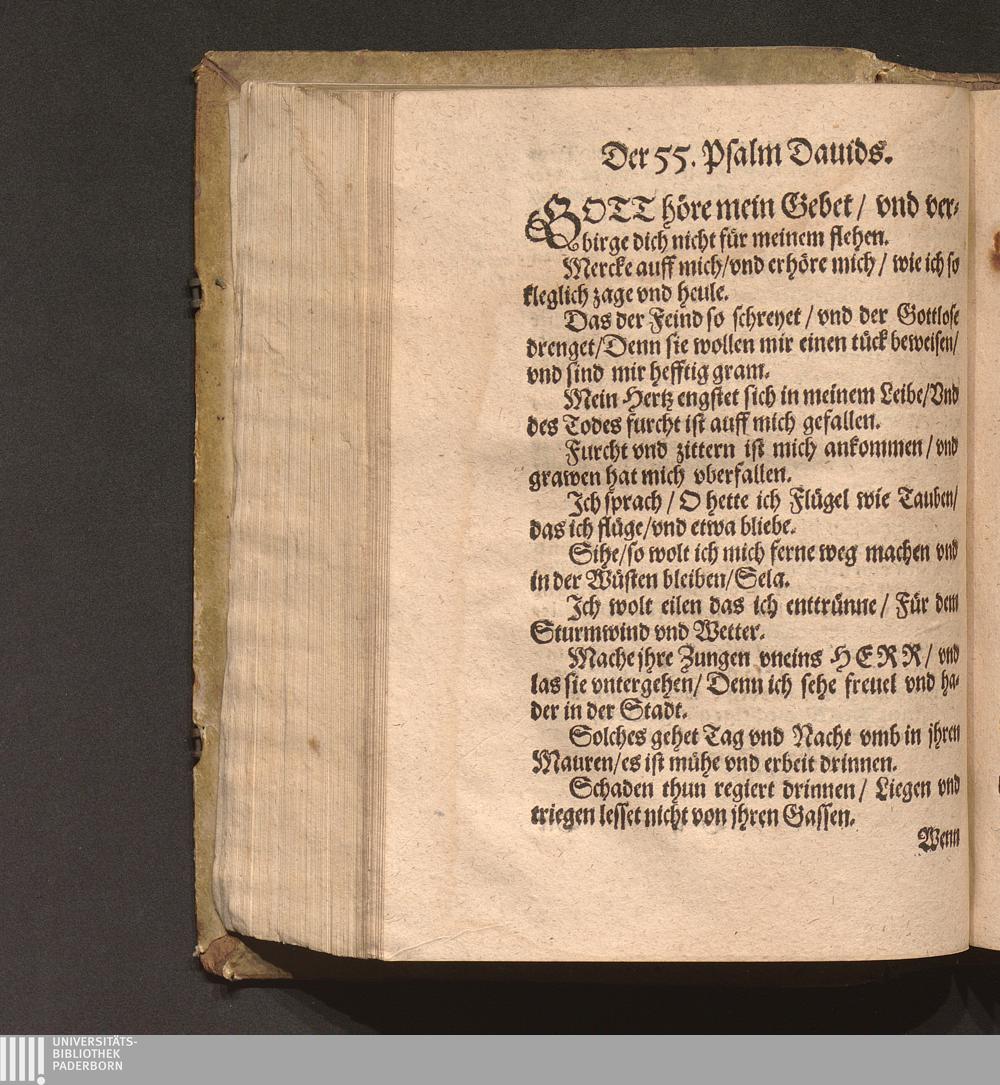 Der 55. Psalm Dauids.
GOTT höre mein Gebet / vnd ver-
birge dich nicht für meinem flehen.
Mercke auff mich/vnd erhöre mich / wie ich so
kleglich zage vnd heule.
Das der Feind so schreyet / vnd der Gottlose
drenget/Denn sie wollen mir einen tück beweisen/
vnd sind mir hefftig gram.
Mein Hertz engstet sich in meinem Leibe/Vnd
des Todes furcht ist auff mich gefallen.
Furcht vnd zittern ist mich ankommen / vnd
grawen hat mich vberfallen.
Ich sprach / O hette ich Flügel wie Tauben/
das ich flüge/vnd etwa bliebe.
Sihe/so wolt ich mich ferne weg machen vnd
in der Wüsten bleiben/Sela.
Ich wolt eilen das ich enttrünne / Für dem
Sturmwind vnd Wetter.
Mache jhre Zungen vneins HERR / vnd
las sie vntergehen/ Denn ich sehe freuel vnd ha-
der in der Stadt.
Solches gehet Tag vnd Nacht vmb in jhren
Mauren/es ist mühe vnd erbeit drinnen.
Schaden thun regiert drinnen / Liegen vnd
triegen lesset nicht von jhren Gassen.
Wenn
UNIVERSITÄTS-
BIBLIOTHEK
PADERBORN